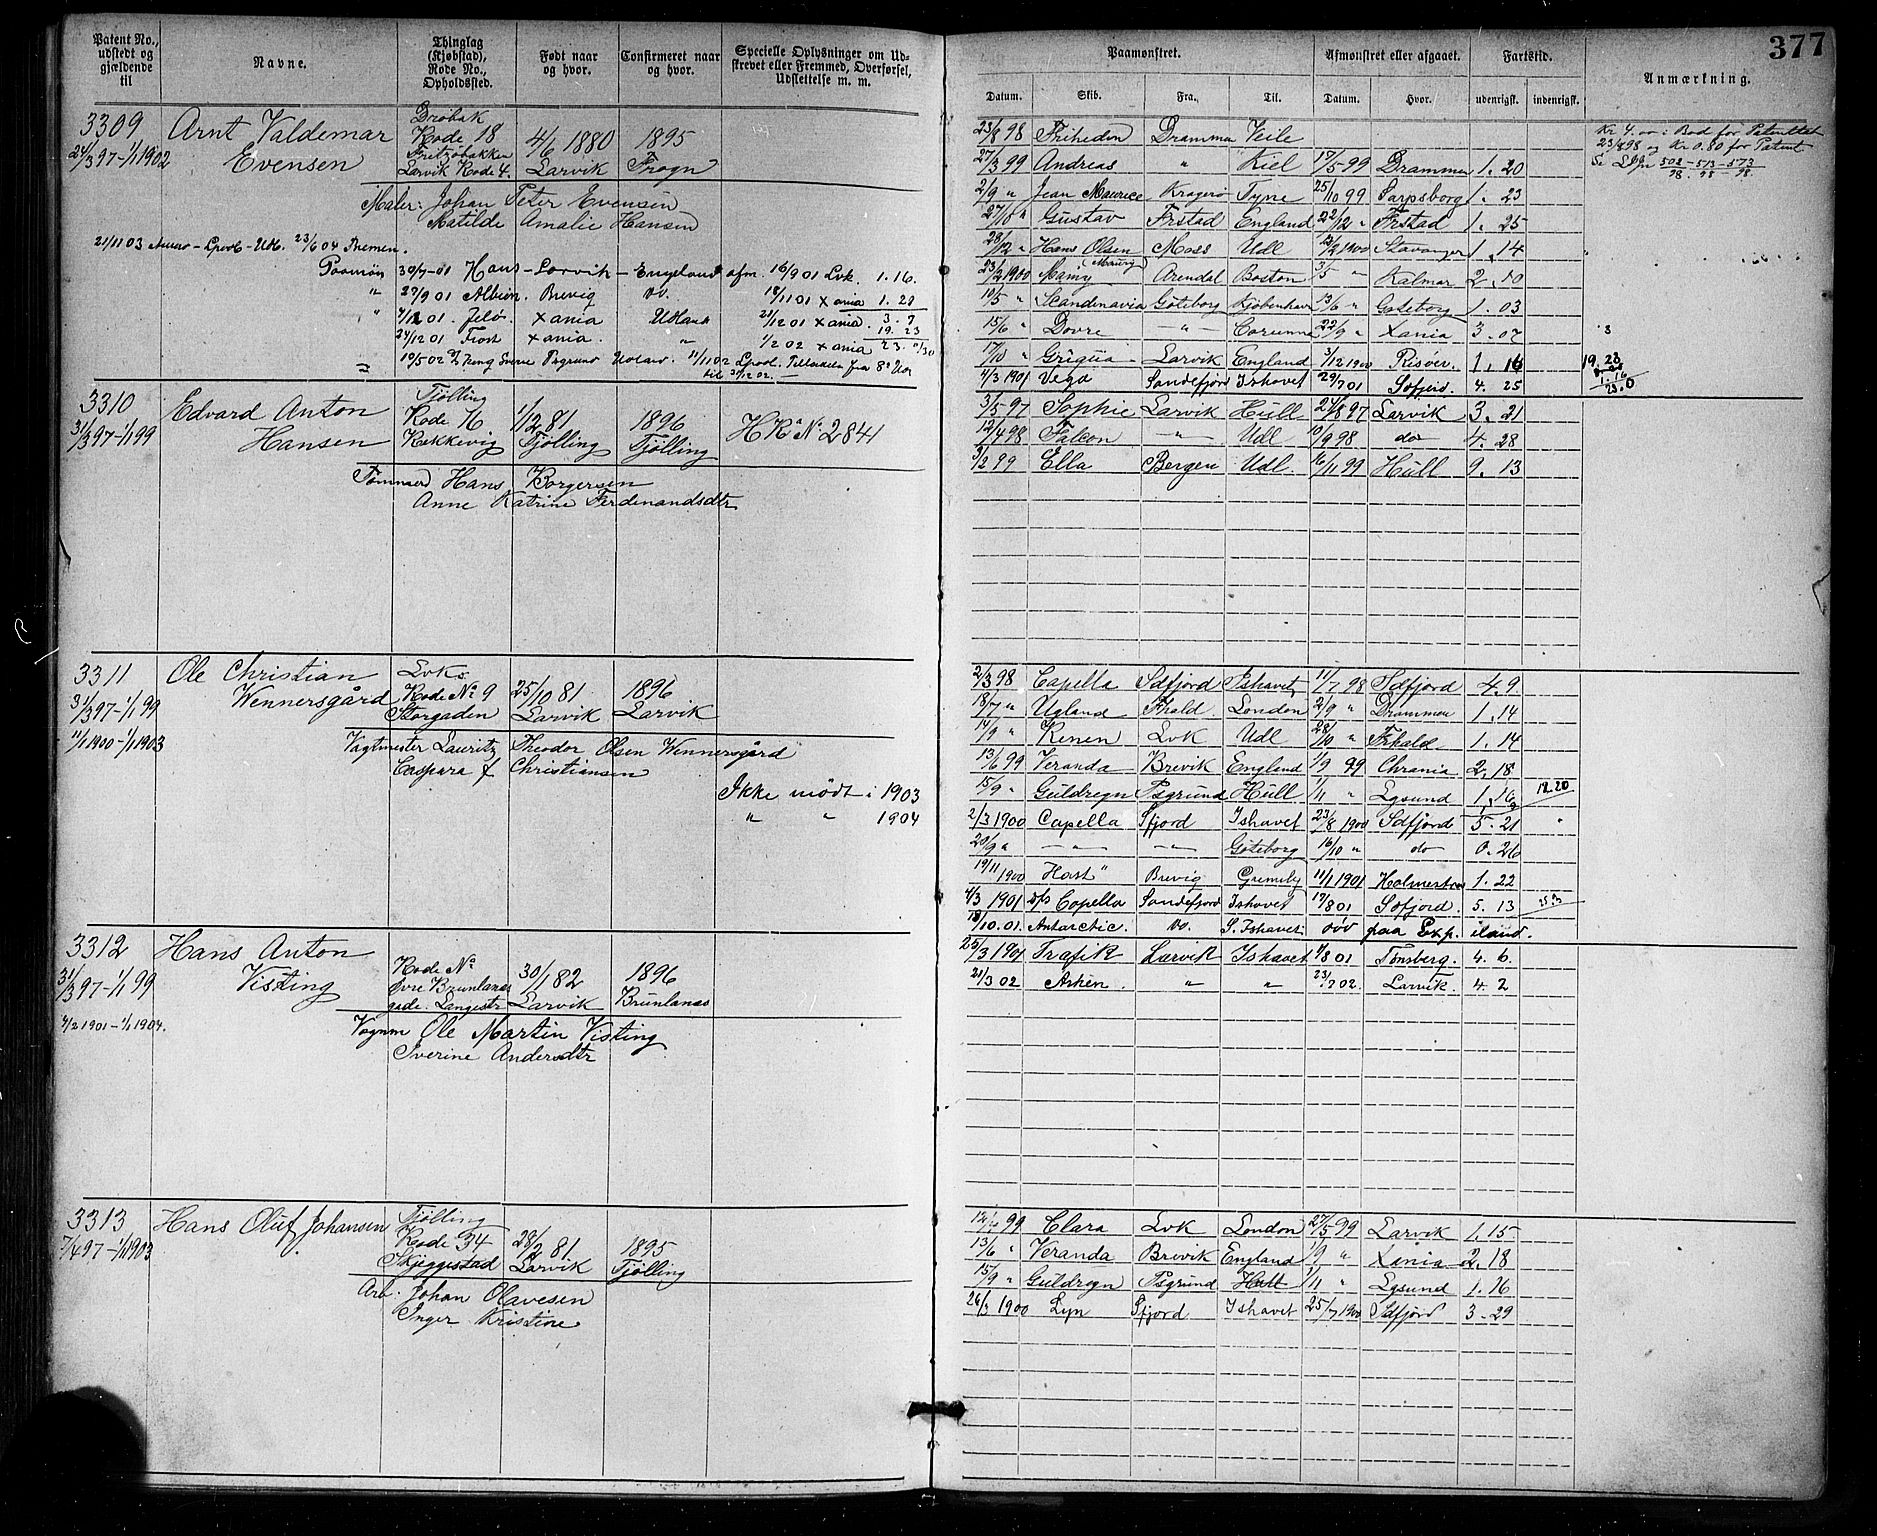 377
Patent No., udstedt og gjældende til
Navne.
Thinglag (Kjøbstad), Rode No., Opholdssted.
Født naar og hvor.
Confirmeret naar og hvor.
Specielle Oplysninger om Udskrevet eller Fremmed, Overførsel, Udslettelse m. m.
Paamønstret.
Afmønstret eller afgaaet.
Fartstid.
Anmærkning.
Datum. Skib. Fra. Til. Datum. Hvor. udenrigsk. indenrigsk.
3309 Arnt Valdemar Evensen
24/3 97-1/1 1902
Drøbak
Rode 18
Fritzøbakken
Larvik Rode 4.
4/6 1880 Larvik
1895 Frogn
Maler: Johan Peter Evensen
Matilde Amalie Hansen
Paamøn 30/7-01 Hans - Larvik - England afm. 16/9 01 Lvk. 1.16.
" 27/9 01 Albion. Brevig do. 18/11 01 Xania 1.21
" 4/12 01. Jelø. Xania Udland 21/12 01 Xania. 3.7
19. 23
24/12 01 Frost Xania. " 1/2 02 Xania 23.
23/8 98 Friheden Drammen Veile
27/3 99 Andreas " Kiel 17/5 99 Drammen 1. 20
2/9 " Jean Maurice Kragerø Tyne 25/10 99 Sarpsborg 1. 23
27/10 " Gustav Frstad England 22/12 " Frstad 1. 25
28/12 " Hans Olsen Moss Udl 2/2 1900 Stavanger 1. 14
23/2 1900 Mamy (Maury) Arendal Boston 3/5 " Kalmar 2. 10
10/5 " Scandinavia Göteborg Kjøbenhavn 13/6 " Göteborg 1. 03
15/6 " Dovre -"- Corunna 22/9 " Xania 3. 07
17/10 " Griqua Larvik England 3/12 1900 Risøer. 1. 16
4/3 1901 Vega Sandefjord Ishavet 29/7 01 Sefjord. 4. 25
Kr 4.00: Bod for Patenttab
23/8 98 og Kr 0.80 for Patent
3310 Edvard Anton Hansen
31/3 97-1/1 99
Tjølling
Rode 16
Rekkevig
1/2 81 Tjølling
1896 Tjølling
HR No 2841
Tømmerm Hans Borgersen
Anne Katrine Ferdinandsdtr
3/5 97 Sophie Larvik Hull 24/8 97 Larvik 3. 21
12/4 98 Falcon -"- Udl 10/9 98 do 4. 28
3/2 99 Ella Bergen Udl. 16/11 99 Hull 9. 13
3311 Ole Christian Wennersgård
31/3 97-1/1 99
11/1 1900-1/1 1903
Lvk.
Rode No 9
Storgaden
25/10 81 Larvik
1896 Larvik
Vagtmester Lauritz Theodor Olsen Wennersgård
Caspara f Christiansen
Ikke mødt i 1903
" " 1904
2/3 98 Capella Sdfjord Ishavet 11/7 98 Sdfjord 4. 9
18/7 " Ugland Frhald. London 2/9 " Drammen 1. 14
14/9 " Renen Lvk Udl 28/10 " Frhald 1. 14
13/6 99 Veranda Brevik England 1/9 99 Chrania 2. 18
15/9 " Guldregn Psgrund Hull 1/11 " Lgsund 1. 16 12. 20
2/3 1900 Capella Sfjord Ishavet 23/8 1900 Sdfjord 5. 21
20/9 " -"- -"- Göteborg 16/10 " do 0. 26
19/11 1900 Hast" Brevig Grimsby 11/1 1901 Holmestrand 1. 22
4/3 1901 s/s Capella Sandefjord Ishavet 17/8 01 Sefjord. 5. 13
18/10. 01. Antarctic. do. S. Ishavet. døv paa Exp. iland.
3312 Hans Anton Visting
31/3 97-1/1 99
4/2 1901-1/1 1904.
Rode No
Øvre Brunlanas
gade. Langestr
30/1 82 Larvik
1896 Brunlanas
Vognm Ole Martin Visting
Iverine Andersdtr
25/3 1901 Trafik Larvik Ishavet 1/8 01 Tønsberg. 4. 6.
21/3 02 Asken. " " 23/7 02. Larvik. 4. 2
3313 Hans Oluf Johansen
7/4 97-1/1 1903
Tjølling
Rode 34
Skjeggestad
28/2 81. Larvik
1895 Tjølling
Arb. Johan Olavesen
Inger Kristine
12/4 99 Clara Lvk London 27/5 99 Larvik 1. 15
13/6 " Veranda Brevik England 1/9 " Xania 2. 18
15/9 " Guldregn Psgrund Hull 1/11 " Lgsund 1. 16
26/3 1900 Lyn Sfjord Ishavet 25/7 1900 Sdfjord 3. 29